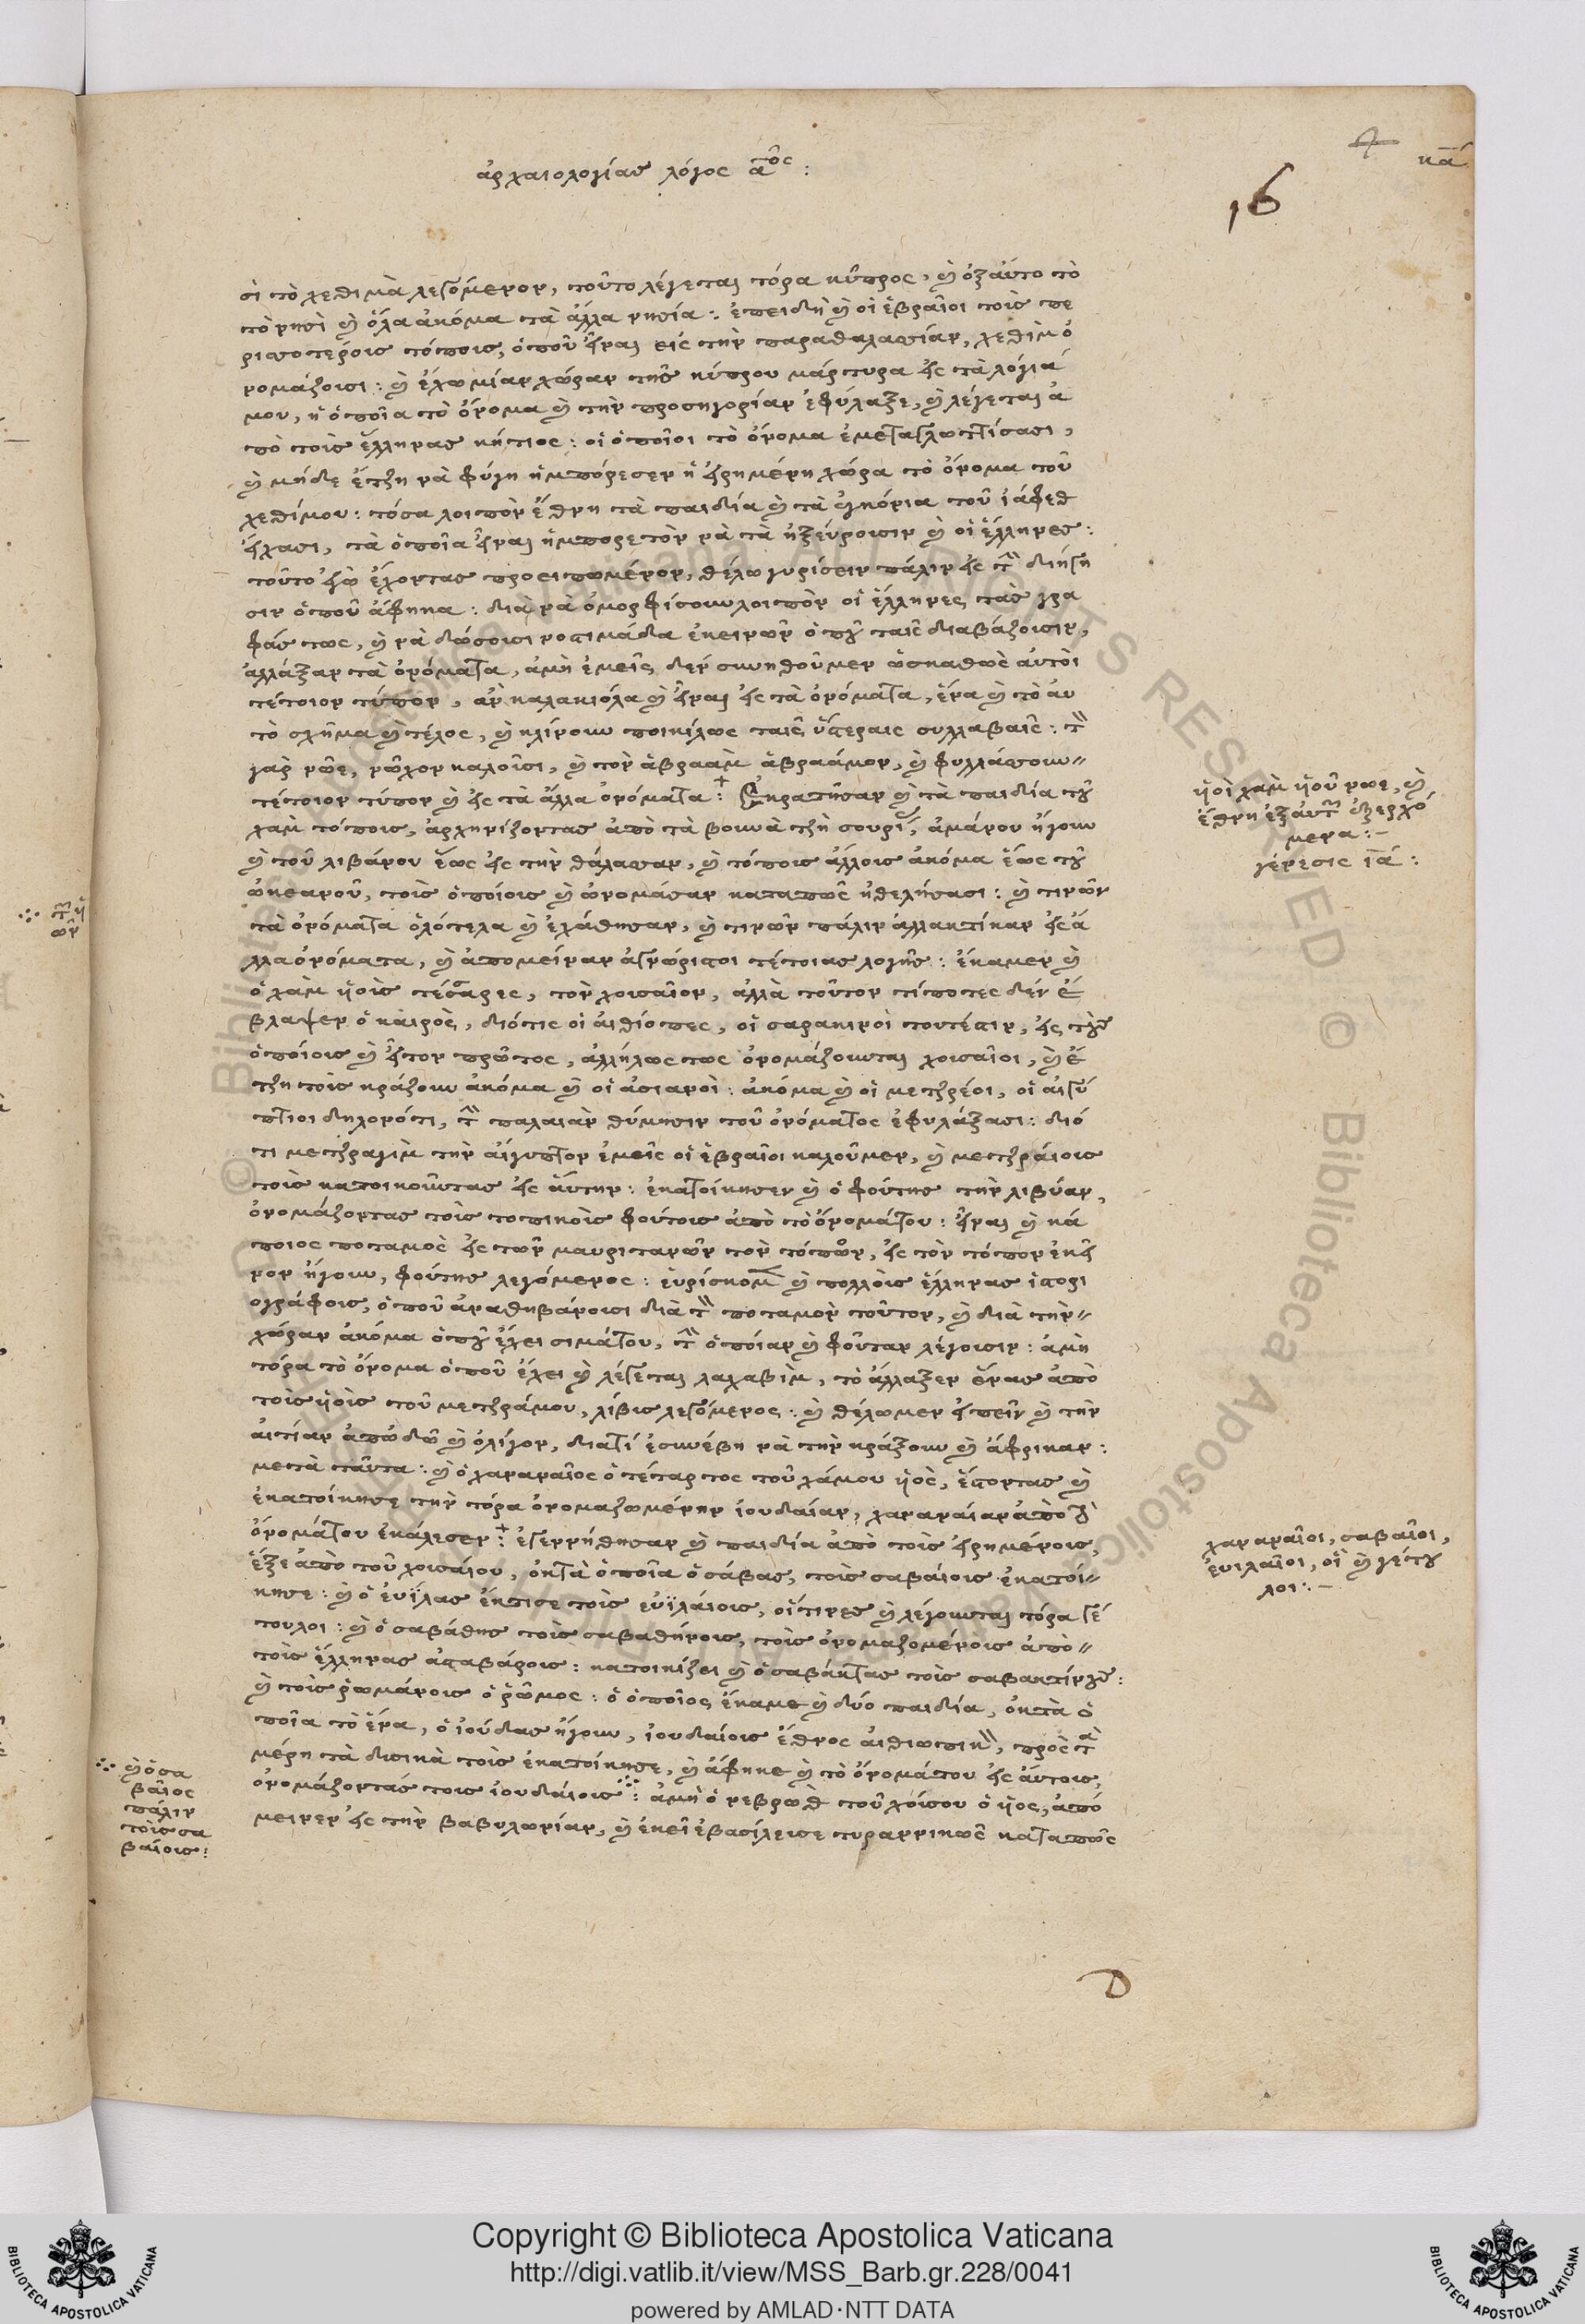 ἀρχαιολογίας λόγος α^ος :
κα´
16
σὶ τὸ χεθιμὰ λεγόμενον, τοῦτο λέγεται τόρα κῦπρος, καὶ ὀξαύτο τὸ
τὸ νησὶ καὶ ὅλα ἀκόμα τὰ ἄλλα νησία : ἐπειδὴ καὶ οἱ ἑβραῖοι τοὶς πε
ρισοτέροις τόποις, ὁποῦ εἶναι εἰς τὴν παραθαλασίαν, χεθὶμ ὀ
νομάζοισι : καὶ ἔχω μίαν χώραν τῆς κύπρου μάρτυρα εἰς τὰ λόγιά
μου, ἡ ὁποῖα τὸ ὄνομα καὶ τὴν προσηγορίαν ἐφύλαξε, καὶ λέγεται ἀ
πὸ τοὶς ἕλληνας κήτιος : οἱ ὁποῖοι τὸ ὄνομα ἐμεταγλωττίσασι,
καὶ μήδε ἔτζη νὰ φύγη ἡμπόρεσεν ἡ εἰρημένη χώρα τὸ ὄνομα τοῦ
χεθίμου : τόσα λοιπὸν ἔθνη τὰ παιδία καὶ τὰ ἐγκόνια τοῦ ἰάφεθ
εἴχασι, τὰ ὁποῖα εἶναι ἡμπορετὸν νὰ τὰ ἠξεύροισιν καὶ οἱ ἕλληνες :
τοῦτο ἐγὼ ἔχοντας προειπωμένον, θέλω γυρίσειν πάλιν εἰς τὴν διήγη
σιν ὁποῦ ἄφηκα : διὰ νὰ ὀμορφίσουν λοιπὸν οἱ ἕλληνες τὰς γρα
φάς τως, καὶ νὰ δώσοισι νοστιμάδα ἐκεινῶν ὁποῦ ταὶς διαβάζοισιν,
ἀλλάξαν τὰ ὀνόματα, ἀμὴ ἐμεῖς δὲν συνηθοῦμεν ὡσκαθὼς ἀυτὸι
τέτοιον τύπον, ἀν καλακιόλα καὶ εἶναι εἰς τὰ ὀνόματα, ἕνα καὶ τὸ ἀυ
τὸ σχῆμα καὶ τέλος, καὶ κλίνουν ποικίλως ταὶς ὕστεραις συλλαβαὶς : τὸν
γὰρ νῶε, νῶχον καλοῖσι, καὶ τὸν ἁβραὰμ ἁβραάμον, καὶ φυλλάσουν
τέτοιον τύπον καὶ εἰς τὰ ἄλλα ὀνόματα : Ἐκρατῆσαν καὶ τὰ παιδία τοῦ
χὰμ τόποις, ἀρχηνίζοντας ἀπὸ τὰ βουνὰ τζὴ συρίας, ἀμάνου ἤγουν
καὶ τοῦ λιβάνου ἕως εἰς τὴν θάλασαν, καὶ τόποις ἄλλοις ἀκόμα ἕως τοῦ
ὠκεανοῦ, τοὶς ὁποίοις καὶ ὠνομάσαν καταπῶς ἠθελήσασι : καὶ τινῶν
τὰ ὀνόματα ὁλότελα καὶ ἐχάθησαν, καὶ τινῶν πάλιν ἀλλακτίκαν εἰς ἄ
λλα ὀνόματα, καὶ ἀπομείναν ἀγνώριστοι τέτοιας λογῆς : ἔκαμεν καὶ
ὁ χὰμ ὑοὶς τέσσαρες, τὸν χουσαῖον, ἀλλὰ τοῦτον τίποτες δὲν ἔ
βλαψεν ὁ καιρὸς, διότις οἱ ἀιθίοπες, οἱ σαρακινοὶ τουτέστιν, εἰς τοὺς
ὁποίοις καὶ εἶτον πρῶτος, ἀλλήλως τως ὀνομάζουνται χοισαῖοι, καὶ ἔ
τζη τοὶς κράζουν ἀκόμα καὶ οἱ ἀσιανοὶ : ἀκόμα καὶ οἱ μετζρέοι, οἱ ἀιγύ
πτιοι δηλονότι, τὴν παλαιὰν θύμησιν τοῦ ὀνόματος ἐφυλάξασι : διό
τι μετζραγὶμ τὴν ἀίγυπτον ἐμεῖς οἱ ἑβραῖοι καλοῦμεν, καὶ μετζράιοις
τοὶς κατοικοῦντας εἰς ἄυτην : ἐκατοίκησεν καὶ ὁ φούτης τὴν λιβύαν,
ὀνομάζοντας τοὶς τοπικοὶς φούτοις ἀπὸ τὸ ὄνομάτου : εἶναι καὶ κά
ποιος ποταμὸς εἰς τῶν μαυριτανῶν τὸν τόπον, εἰς τὸν τόπον ἐκεῖ
νον ἤγουν, φούτης λεγόμενος : ἑυρίσκομεν καὶ πολλὸὶς ἕλληνας ἱστορι
ογράφοις, ὁποῦ ἀναθηβάνοισι διὰ τὸν ποταμὸν τοῦτον, καὶ διὰ τὴν
χώραν ἀκόμα ὁποῦ ἔχει σιμάτου, τὴν ὁποίαν καὶ φοῦταν λέγοισιν : ἀμὴ
τόρα τὸ ὄνομα ὁποῦ ἔχει καὶ λέγεται λαχαβὶμ, τὸ ἄλλαξεν ἕνας ἀπὸ
τοὶς ὑοὶς τοῦ μετζράμου, λίβις λεγόμενος : καὶ θέλωμεν εἰπεῖν καὶ τὴν
ἀιτίαν ἀπώδῶ καὶ ὀλίγον, διατί ἐσυνέβη νὰ τὴν κράξουν καὶ ἄφρικαν :
μετὰ ταῦτα : καὶ ὁ χαναναῖος ὁ τέταρτος τοῦ χάμου ὑὸς, ἔστοντας καὶ
ἐκατοίκησε τὴν τόρα ὀνομαζωμένην ἰουδαίαν, χαναναίαν ἀπὸ τὸ
ὄνομάτου ἐκάλεσεν : ἐγεννήθησαν καὶ παιδία ἀπὸ τοὶς εἰρημένοις,
ἕξε ἀπὸ τοῦ χοισαίου, ὀκτὰ ὁποῖα ὁ σάβας, τοὶς σαβαίοις ἐκατοί
κησε : καὶ ὁ ἐυΐλας ἔκτισε τοὶς ἐυϊλάιοις, οἵτινες καὶ λέγουνται τόρα γέ
τουλοι : καὶ ὁ σαβάθης τοὶς σαβαθήνοις, τοὶς ὀνομαζομένοις ἀπὸ
τοὶς ἕλληνας ἀσταβάροις : κατοικίζει καὶ ὁ σαβάκτας τοὶς σαβακτίνους :
καὶ τοὶς ῥωμάνοις ὁ ῥῶμος : ὁ ὁποῖος ἔκαμε καὶ δύο παιδία, ὀκτὰ ὁ
ποῖα τὸ ἕνα, ὁ ἰούδας ἤγουν, ἰουδαίοις ἔθνος ἀιθιωπικὸν, πρὸς τὰ
μέρη τὰ δισικὰ τοὶς ἐκατοίκησε, καὶ ἄφηκε καὶ τὸ ὄνομάτου εἰς ἄυτοις,
ὀνομάζοντάς τοις ἰουδάιοις : ἀμὴ ὁ νεβρωθ τοῦ χοίσου ὁ ὑὸς, ἀπό
μεινεν εἰς τὴν βαβυλωνίαν, καὶ ἐκεῖ ἐβασίλεισε τυραννικῶς καταπῶς
ὑοὶ χὰμ ὑοῦ νωε, καὶ
ἔθνη ἐξαύτῶν ἐξερχό
μενα : –
γένεσις ια´ :
χαναναῖοι, σαβαῖοι,
ἐυιλαῖοι, οἳ καὶ γέτου
λοι : –
καὶ ὁ σα
βαῖος
πάλιν
τοὶς σα
βαίοις :
D
Copyright © Biblioteca Apostolica Vaticana
http://digi.vatlib.it/view/MSS_Barb.gr.228/0041
powered by AMLAD·NTT DATA